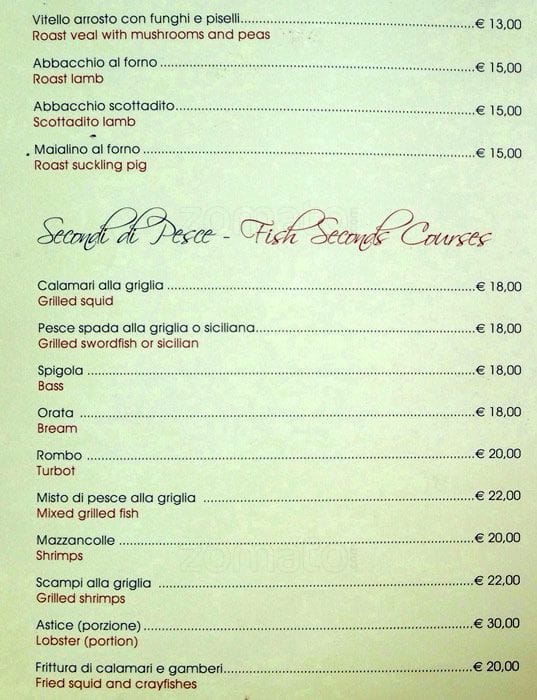 Vitello arrosto con funghi e piselli........€ 13,00
Roast veal with mushrooms and peas
Abbacchio al forno........€ 15,00
Roast lamb
Abbacchio scottadito........€ 15,00
Scottadito lamb
Maialino al forno........€ 15,00
Roast suckling pig
Secondi di Pesce - Fish Seconds Courses
Calamari alla griglia........€ 18,00
Grilled squid
Pesce spada alla griglia o siciliana........€ 18,00
Grilled swordfish or sicilian
Spigola........€ 18,00
Bass
Orata........€ 18,00
Bream
Rombo........€ 20,00
Turbot
Misto di pesce alla griglia........€ 22,00
Mixed grilled fish
Mazzancolle........€ 20,00
Shrimps
zomato
Scampi alla griglia........€ 22,00
Grilled shrimps
Astice (porzione)........€ 30,00
Lobster (portion)
Frittura di calamari e gamberi........€ 20,00
Fried squid and crayfishes